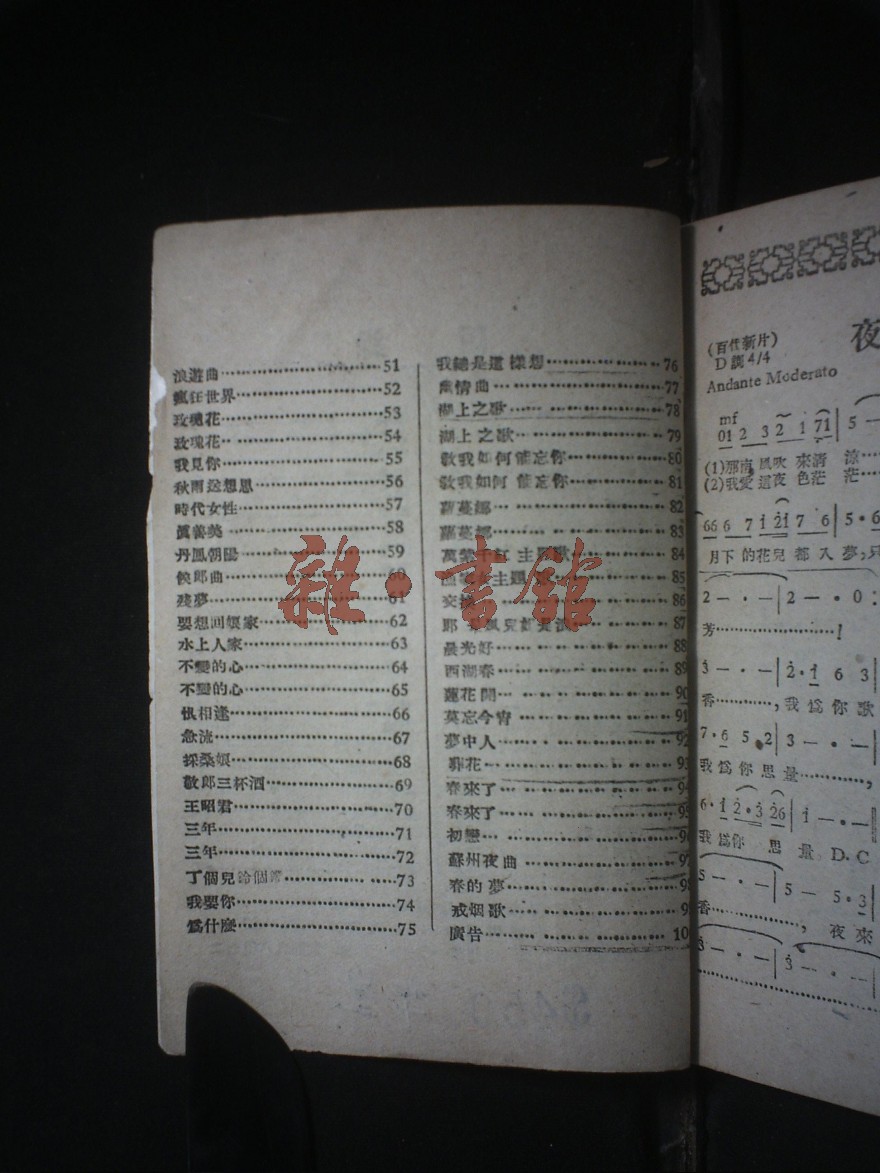 浪遊曲……51
瘋狂世界……52
玫瑰花……53
玫瑰花……54
我見你……55
秋雨送想思……56
時代女性……57
眞善美……58
丹鳳朝陽……59
候郎曲……60
殘夢……61
要想回娘家……62
水上人家……63
不變的心……64
不變的心……65
恨相逢……66
急流……67
採桑娘……68
敬郎三杯酒……69
王昭君……70
三年……71
三年……72
丁個兒給個……73
我要你……74
爲什麼……75
我總是這樣想……76
情曲……77
湖上之歌……78
湖上之歌……79
敎我如何能忘你……80
敎我如何能忘你……81
蘿蔓娜……82
蘿蔓娜……83
萬紫千紅 主題歌……84
主題……85
交換……86
87
晨光好……88
西湖春……89
蓮花開……90
莫忘今宵……91
夢中人……92
葬花……93
春來了……94
春來了……95
初戀……96
蘇州夜曲……97
春的夢……98
戒烟歌……9
廣告……10
雜·書館
夜
(百代新片)
D調4/4
Andante Moderato
mf
01 2 3 2 1 71 | 5 —
(1)那南風吹來清涼……
(2)我愛這夜色茫茫……
66 6 7 1 21 7 6 | 5 · 6
月下的花兒都入夢,只
2 — · — | 2 — · 0 :
芳……!
3 — · — | 2 · 1 6 3
香……,我爲你歌
7 · 6 5 2 | 3 — · —
我爲你思量……,
6 · 1 2 · 3 26 | 1 — · —
我爲你 思 量 D.C
5 — · — | 5 — 5 · 3
香……,夜來
3 — · — | 3 — · —